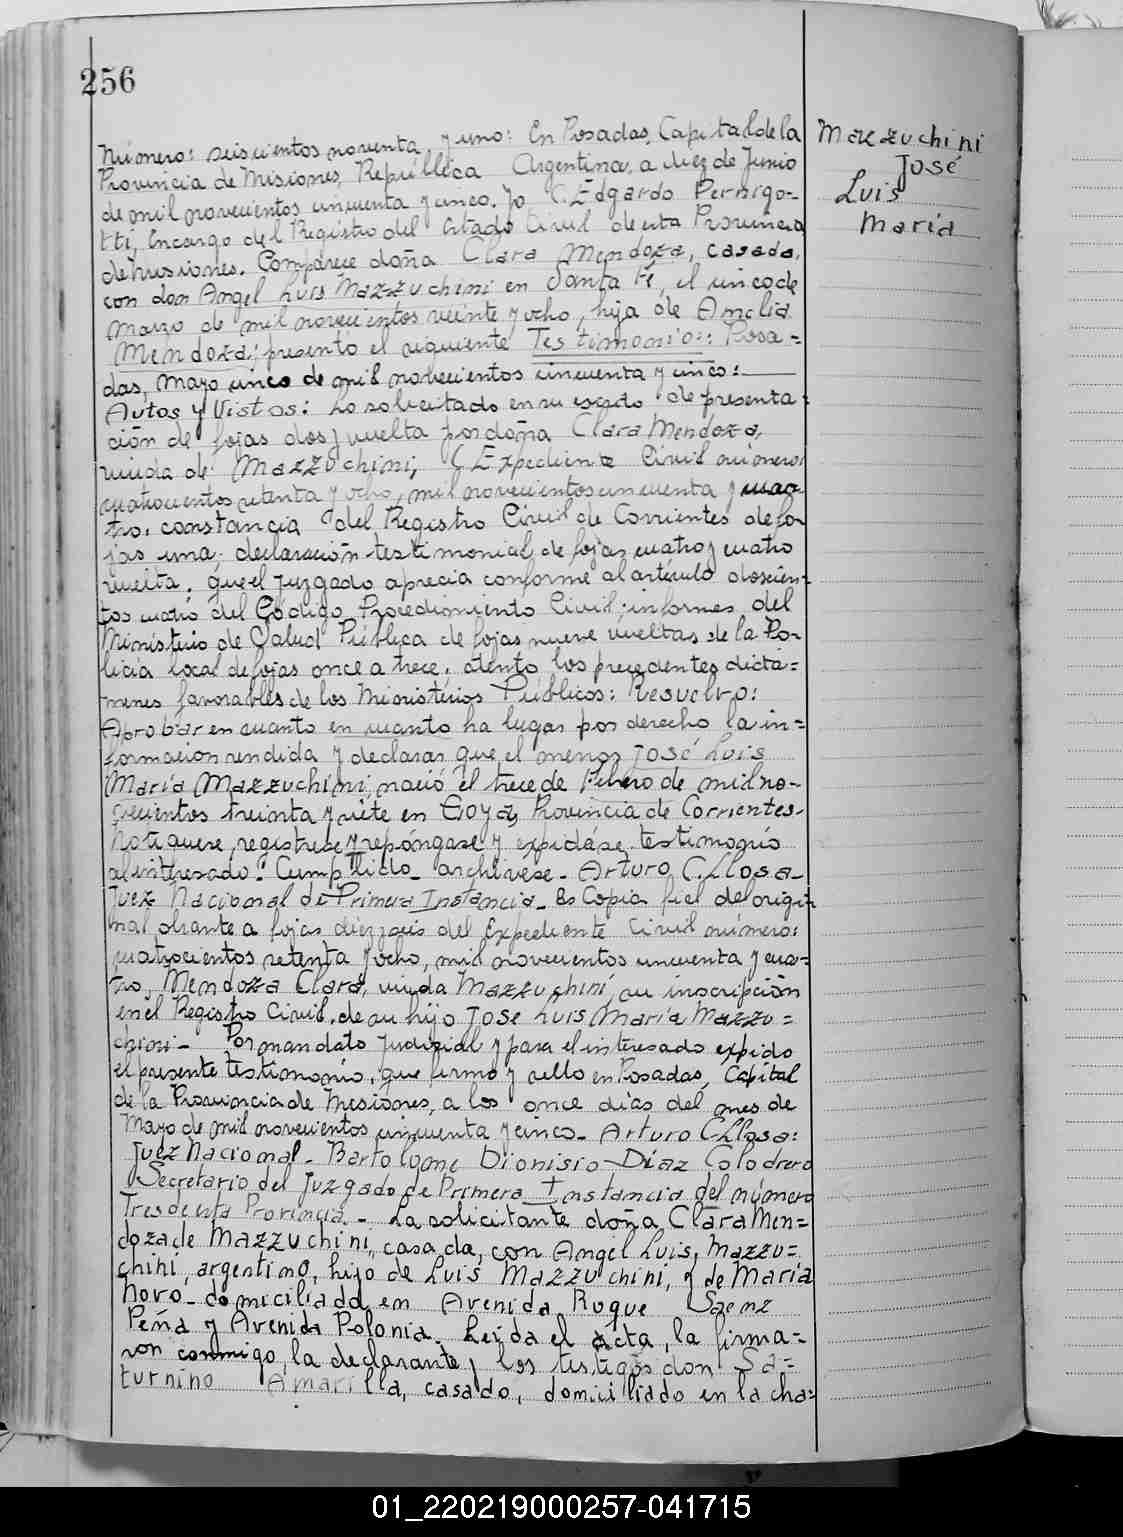 256
Mazzuchini
José
Luis
María
Número: seiscientos noventa y uno: En Posadas, Capital de la
Provincia de Misiones, República Argentina, a diez de Junio
de mil novecientos cincuenta y cinco. Yo C. Edgardo Pernigo-
tti, Encargo del Registro del Estado Civil de esta Provincia
de Misiones. Comparece doña Clara Mendoza, casada,
con don Angel Luis Mazzuchini en Santa Fé, el cinco de
marzo de mil novecientos veinte y ocho, hija de Amelia
Mendoza; presentó el siguiente Testimonio:: Posa=
das, Mayo cinco de mil novecientos cincuenta y cinco:
Autos y Vistos: Lo solicitado en su escrito de presenta=
ción de fojas dos y vuelta por doña Clara Mendoza,
viuda de Mazzuchini, (Expediente Civil número:
cuatrocientos setenta y ocho, mil novecientos cincuenta y cuao-
tro, constancia del Registro Civil de Corrientes de fo-
jas una; declaración testimonial de fojas cuatro y cuatro
vuelta, que el Juzgado aprecia conforme al artículo doscien-
tos cuatro del Código Procedimiento Civil; informes del
Ministerio de Salud Pública de fojas nueve vueltas de la Po-
licia local de fojas once a trece, atento los precedentes dictá=
menes favorables de los Ministérios Públicos: Resuelvo:
Aprobar en cuanto en cuanto ha lugar por derecho la in=
formacion rendida y declarar que el menor José Luis
María Mazzuchini, nació el trece de Febrero de mil no-
vecientos treinta y siete en Goya, Provincia de Corrientes-
Notiquese, registrese y repóngase y expidáse testimonio
al interesado. Cumplido archivese- Arturo C. Llosa-
Juez Nacional de Primera Instancia- Es Copia fiel del origi-
nal obrante a fojas diez y seis del Expediente Civil número:
cuatrocientos setenta y ocho, mil novecientos cincuenta y cua-
tro, Mendoza Clara, viuda Mazzuchini, su inscripción
en el Registro Civil, de su hijo José Luis María Mazzu=
chini- Por mandato judicial y para el interesado expido
el presente testimonio, que firmo y sello en Posadas, Capital
de la Provincia de Misiones, a los once días del mes de
Mayo de mil novecientos cincuenta y cinco- Arturo C. Llosa:
Juez Nacional- Bartolomé Dionisio Díaz Colodrero
Secretario del Juzgado de Primera Instancia del número
Tres de esta Provincia.- La solicitante doña Clara Men=
doza de Mazzuchini, casada, con Angel Luis Mazzu=
chini, argentino, hijo de Luis Mazzuchini, y de María
Novo- domiciliada en Avenida Roque Saenz
Peña y Avenida Polonia. Leida el acta, la firma=
ron conmigo, la declarante y los testigos don Sa=
turnino Amarilla, casado, domiciliado en la cha=
01_220219000257-041715